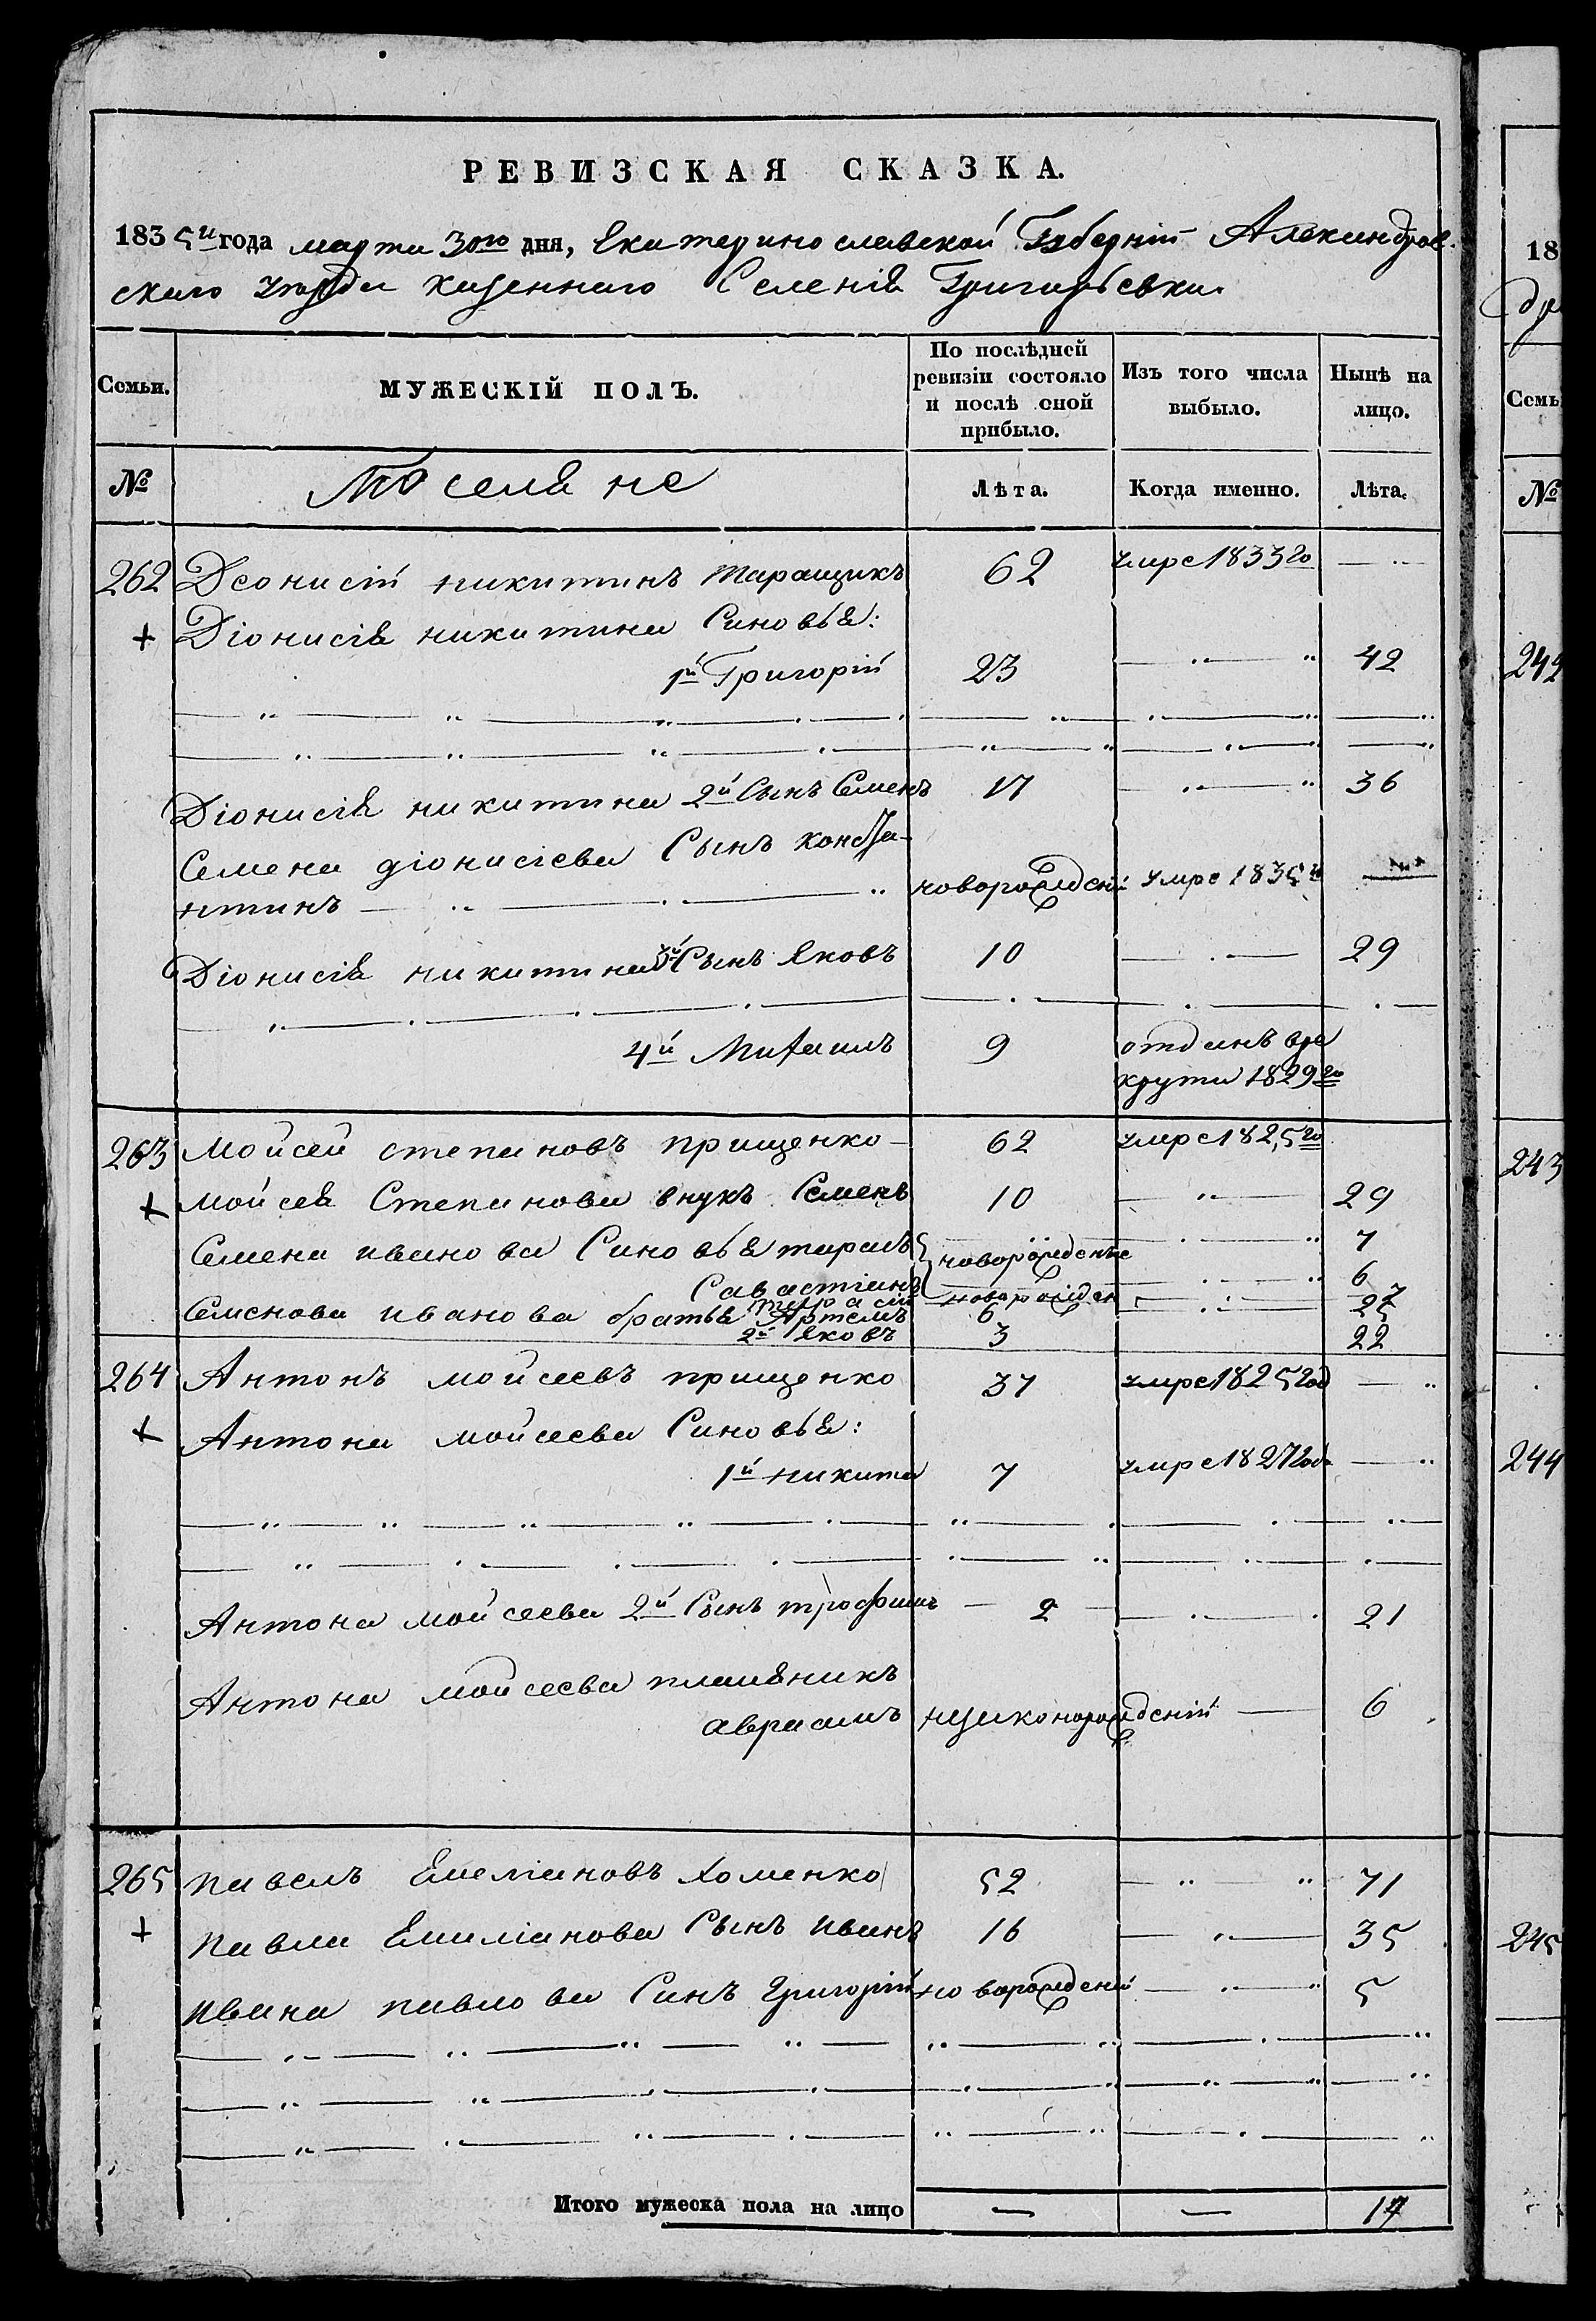 РЕВИЗСКАЯ СКАЗКА.
1835й года марта 30го дня, Екатеринославской Губерніи Александров-
скаго уѣзда казеннаго Селенія Григорьевки
Семьи.
МУЖЕСКІЙ ПОЛЪ.
По послѣдней ревизіи состояло и послѣ оной прибыло.
Изъ того числа выбыло.
Нынѣ на лицо.
№ Поселяне Лѣта. Когда именно. Лѣта.
262 Деонисій никитинъ Таращикъ 62 умре 1833го
+ Діонисія никитина Синовья:
1й Григорій 23 42
Діонисія никитина 2й Сынъ Семенъ 17 36
Семена діонисіева Сынъ конста-
нтинъ новорожденій умре 1835й
Діонисія никитина 3й Сынъ Яковъ 10 29
4й Михаилъ 9 отданъ вре
крути 1829го
263 Мойсей степановъ прищенко 62 умре 1825го
+ Мойсея Степанова внукъ Семенъ 10 29
Семена иванова Синовья тарасъ новорожденъ 7
Савастіанъ 6
Семенова иванова братья Артемъ 6
2й Яковъ 3 22
264 Антонъ мойсеевъ прищенко 37 умре 1825год
+ Антона мойсеева Синовья:
1й никита 7 умре 1827года
Антона мойсеева 2й Сынъ трофимъ 2 21
Антона мойсеева племяникъ
авраамъ 6
265 павелъ Емеліановъ хоменко 52 71
+ павла Емиліанова Сынъ иванъ 16 35
ивана павлова Синъ Григорій новорождений 5
Итого мужеска пола на лицо 17
18
Семь
№
242
243
244
245